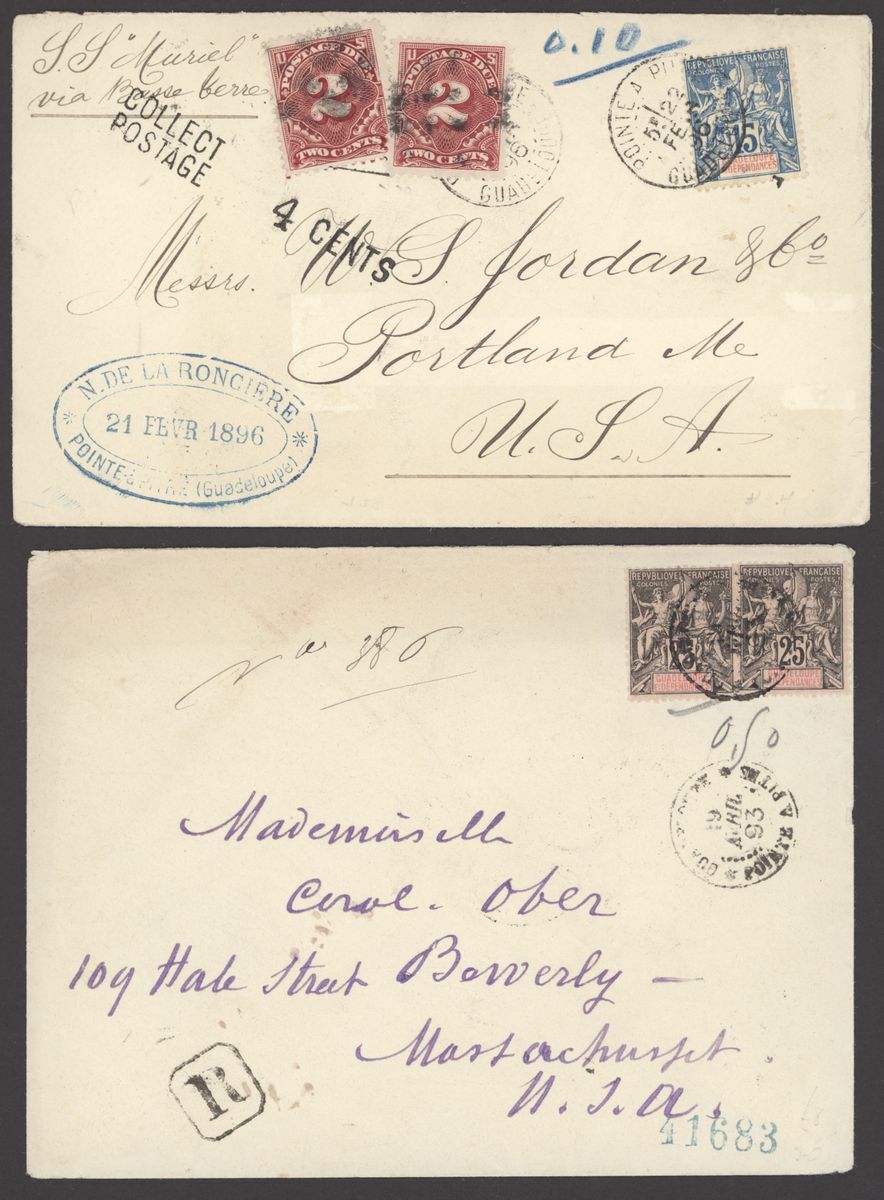 S.S "Muriel"
via Basse terre
COLLECT
POSTAGE
U S
POSTAGE DUE
2
TWO CENTS
U S
POSTAGE DUE
2
TWO CENTS
96
GUADELOUPE
0.10
POINTE A PITRE
5E
22
FEVR
96
GUADELOUPE
REPVBLIQVE FRANÇAISE
COLONIES POSTES
15
GUADELOUPE
ET DEPENDANCES
4 CENTS
Messrs. W. S. Jordan & Co
Portland Me
U. S. A.
N. DE LA RONCIERE
21 FEVR 1896
POINTE à PITRE (Guadeloupe)
REPVBLIQVE FRANÇAISE
COLONIES POSTES
25
GUADELOUPE
ET DEPENDANCES
REPVBLIQVE FRANÇAISE
COLONIES POSTES
25
GUADELOUPE
ET DEPENDANCES
386
0,50
19
AVRIL
93
POINTE A PITRE
Mademoiselle
Coral. Ober
109 Hale Street Beverly —
Massachusset.
U. S. A.
R
41683